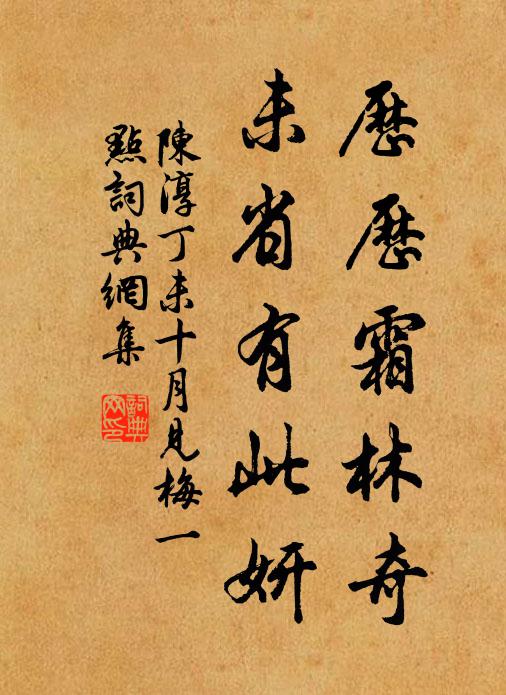 歷歷霜林奇
未省有此妍
陳淳丁未十月見梅一
點詞典網集
詞典
网印